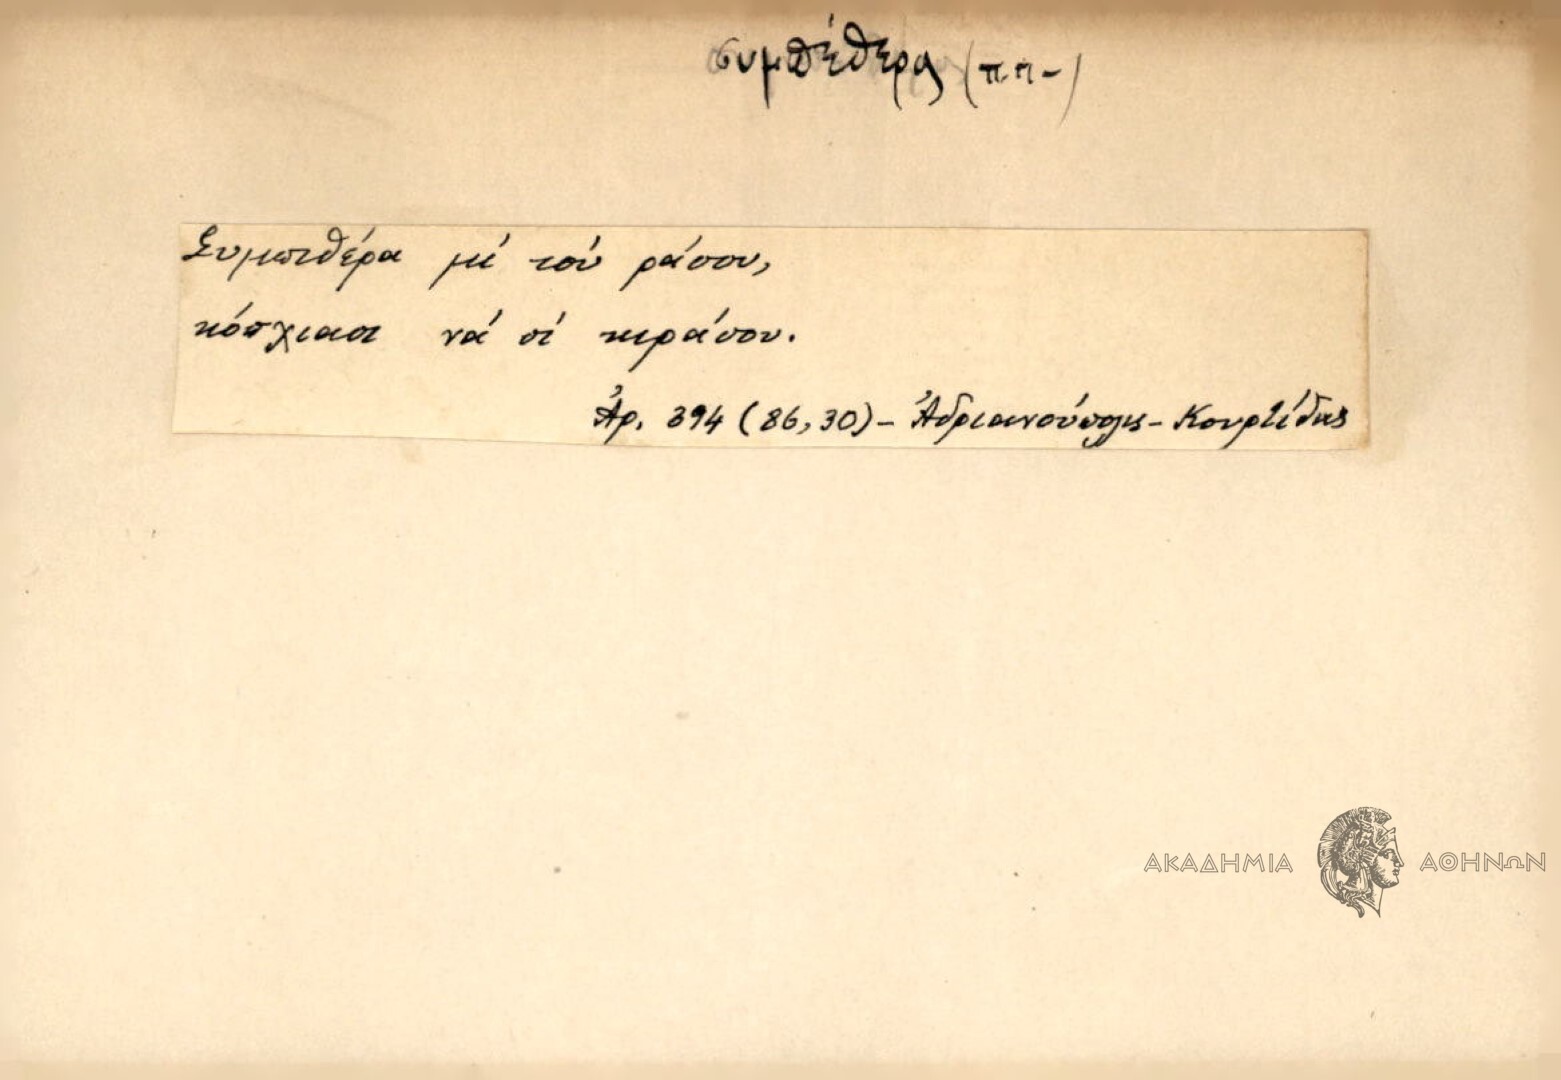 συμπέθερος (π.π-)
Συμπιθέρα μὲ τοὺ ράσου,
κόπχιασι νὰ σὶ κιράσου.
Ἀρ. 394 (86, 30) - Ἀδριανούπολις - Κουρτίδης
ΑΚΑΔΗΜΙΑ ΑΘΗΝΩΝ